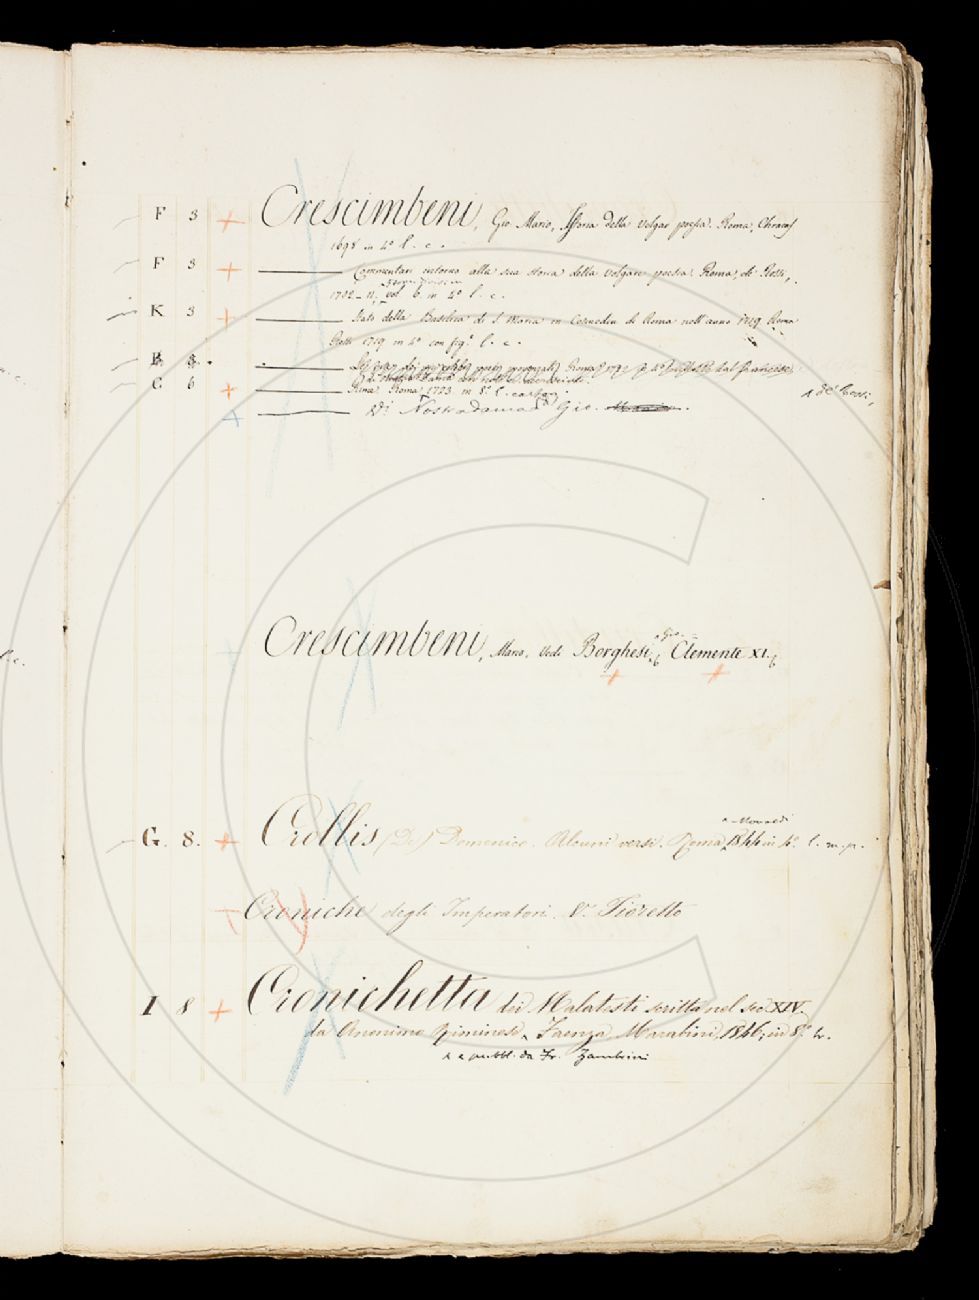 F 3 + Crescimbeni, Gio. Mario, Istoria della volgar poesia. Roma, Chracas
1698 in 4º l. c.
F 3 + ——— Commentari intorno alla sua storia della volgare poesia. Roma, de Rossi,
1702-11, vol. 6. in 4º l. c.
K 3 + ——— Stato della Basilica di S. Maria in Cosmedin di Roma nell'anno 1719. Roma
Rossi 1719 in 4º con fig. l. c.
R 3. ——— Le vite dei più celebri poeti provenzali, Roma dal francese
C 6
+ ——— Roma 1723 in 8º l.
+ ——— Di Nostradama Gio.
de' Rossi,
Crescimbeni, Mario. Vedi Borghesi, Clemente XI.
G. 8. + Crollis (De) Domenico. Alcuni versi. Roma, 1844 in 4º l. m. p.
^ Monaldi
Croniche degli Imperatori. V. Fioretto
I 8 + Cronichetta dei Malatesti scritta nel sec. XIV.
da Anonimo Riminese ^ Faenza, Marabini, 1846, in 8º br.
^ e pubbl. da Fr. Zambrini
l.c.